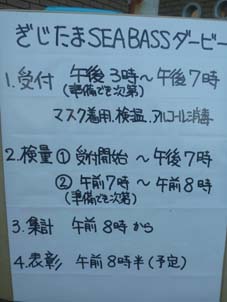 ぎじたまSEABASSダービー
1.受付 午後3時〜午後7時
(準備でき次第)
マスク着用、検温、アルコール消毒
2.検量 ① 受付開始 〜午後7時
② 午前7時 〜 午前8時
(準備でき次第)
3.集計 午前8時から
4.表彰 午前8時半(予定)